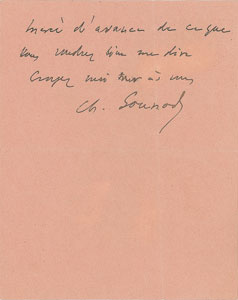 merci d'avance de ce que
vous voudrez bien me dire
Croyez moi tout à vous
Ch. Gounod